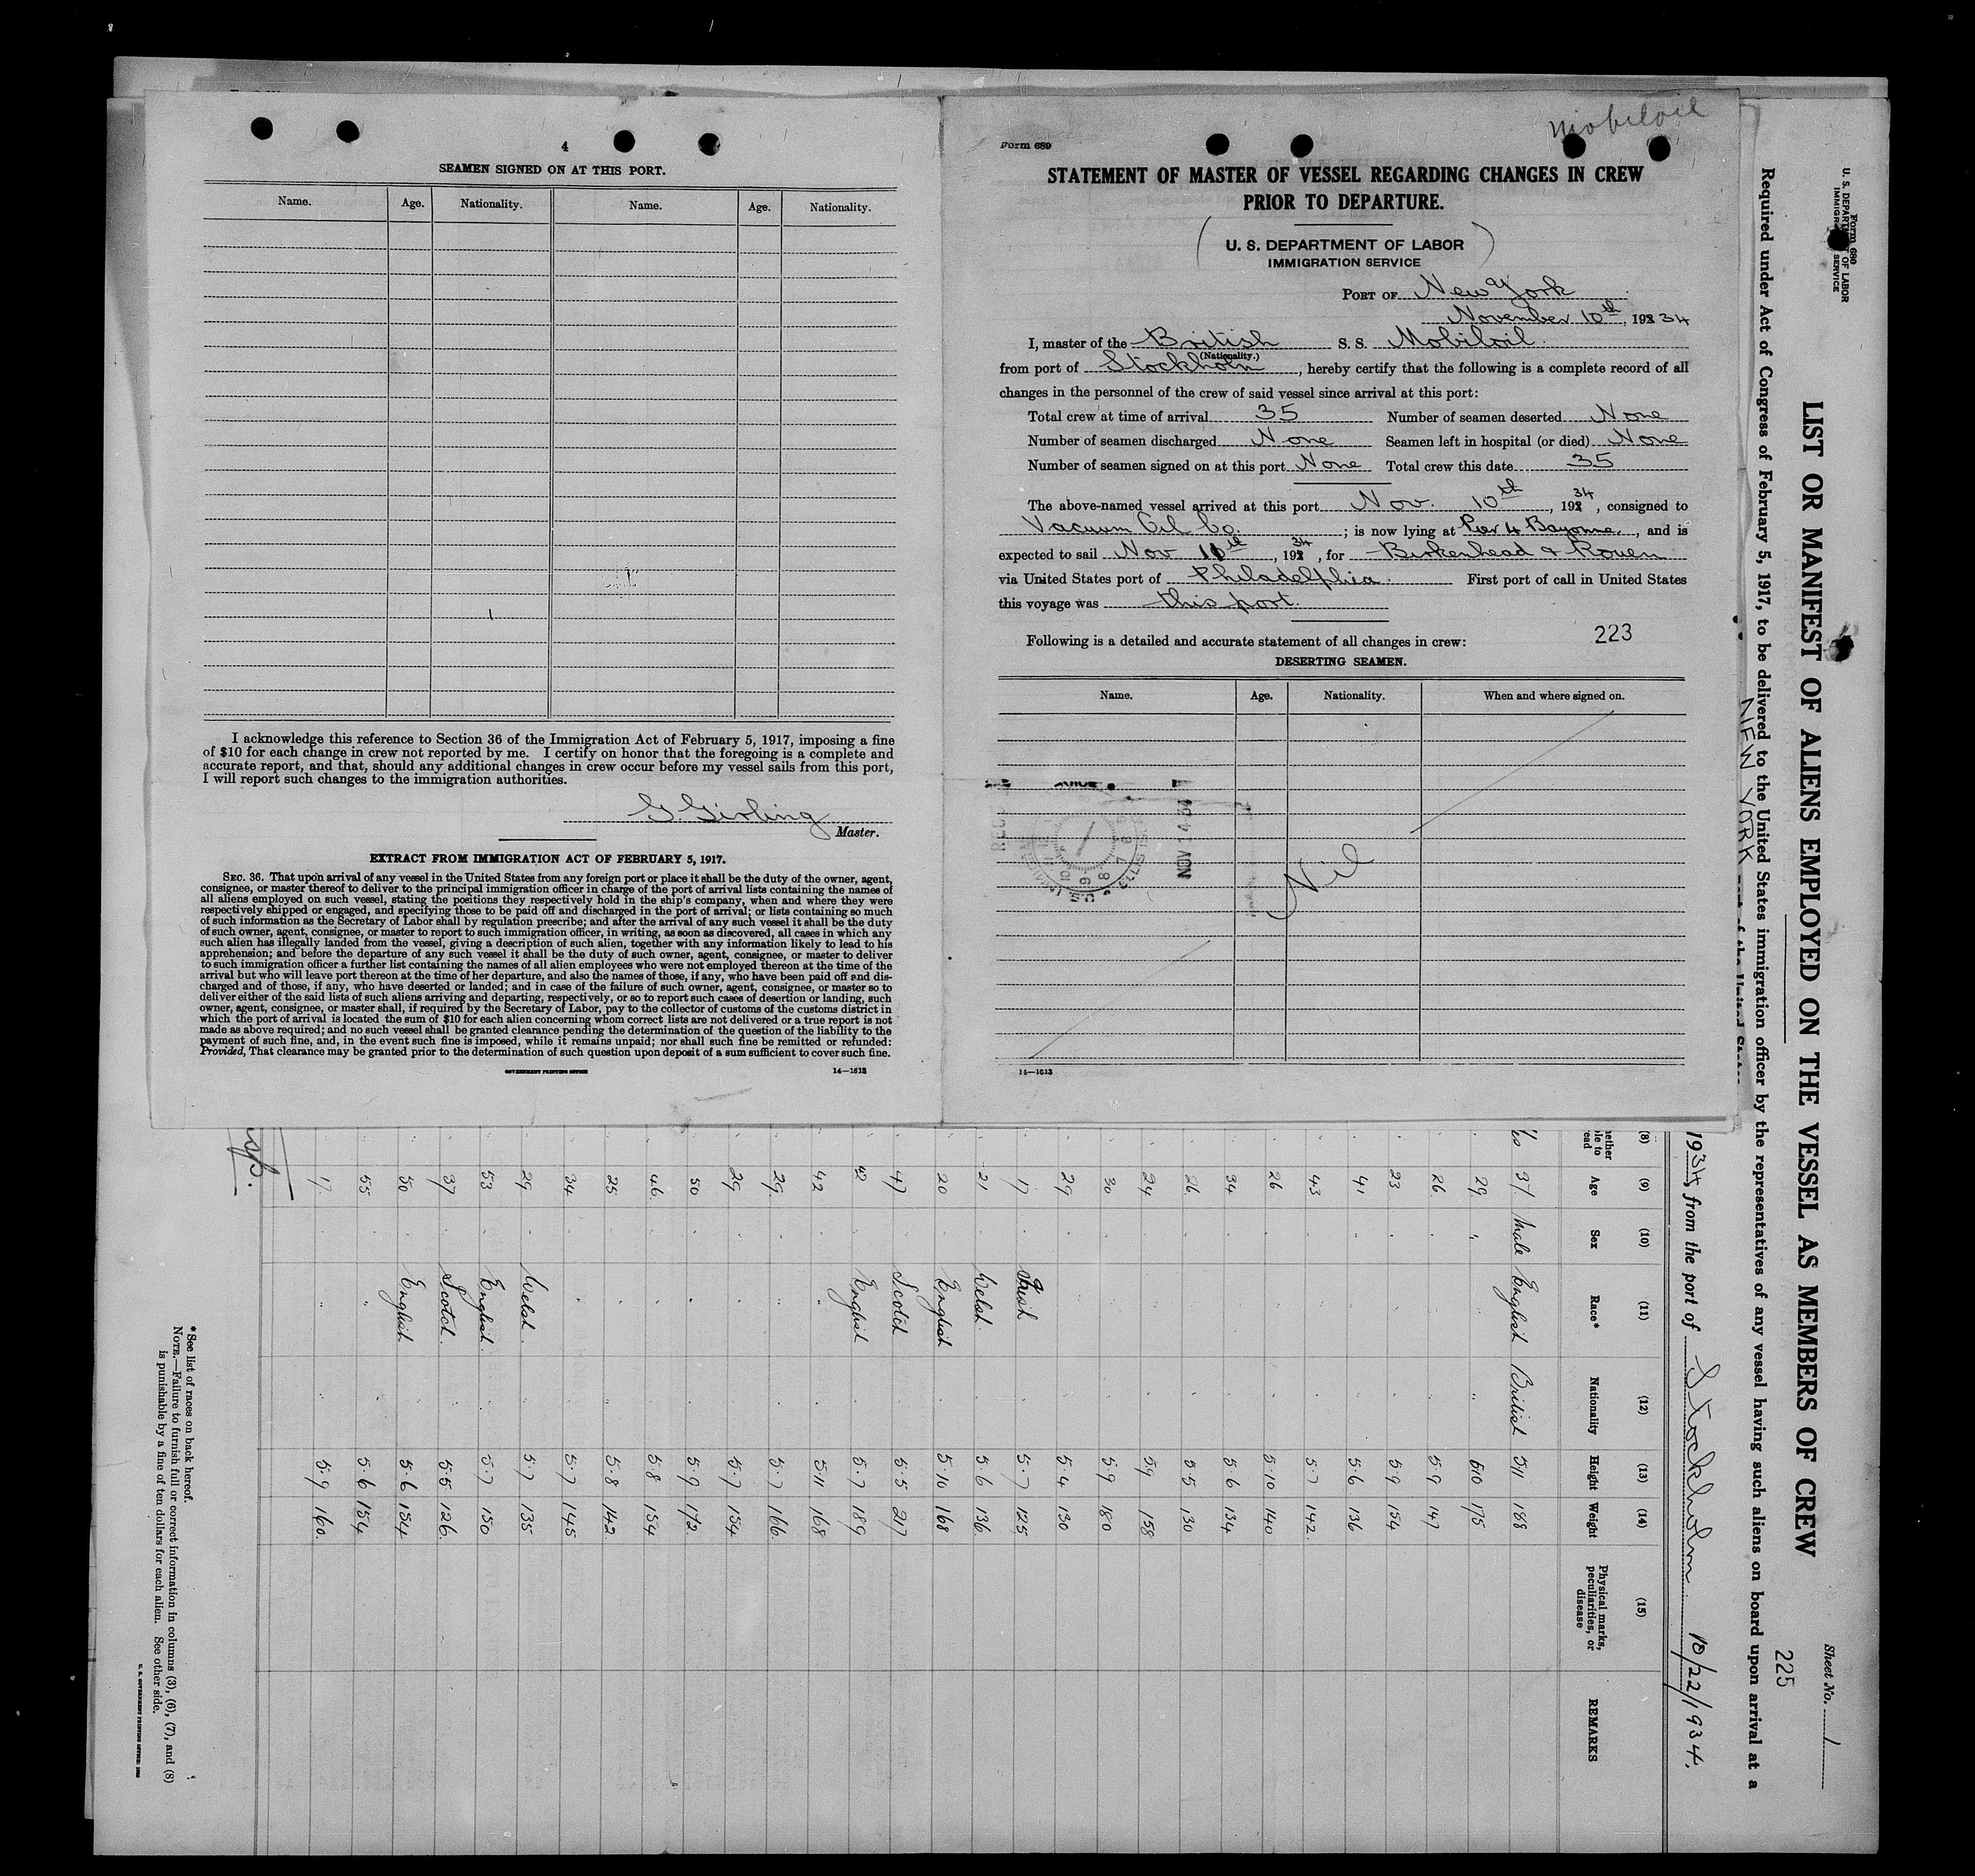 4
SEAMEN SIGNED ON AT THIS PORT.
Name. Age. Nationality. Name. Age. Nationality.
I acknowledge this reference to Section 36 of the Immigration Act of February 5, 1917, imposing a fine
of $10 for each change in crew not reported by me. I certify on honor that the foregoing is a complete and
accurate report, and that, should any additional changes in crew occur before my vessel sails from this port,
I will report such changes to the immigration authorities.
G. Girling
Master.
EXTRACT FROM IMMIGRATION ACT OF FEBRUARY 5, 1917.
SEC. 36. That upon arrival of any vessel in the United States from any foreign port or place it shall be the duty of the owner, agent,
consignee, or master thereof to deliver to the principal immigration officer in charge of the port of arrival lists containing the names of
all aliens employed on such vessel, stating the positions they respectively hold in the ship's company, when and where they were
respectively shipped or engaged, and specifying those to be paid off and discharged in the port of arrival; or lists containing so much
of such information as the Secretary of Labor shall by regulation prescribe; and after the arrival of any such vessel it shall be the duty
of such owner, agent, consignee, or master to report to such immigration officer, in writing, as soon as discovered, all cases in which any
such alien has illegally landed from the vessel, giving a description of such alien, together with any information likely to lead to his
apprehension; and before the departure of any such vessel it shall be the duty of such owner, agent, consignee, or master to deliver
to such immigration officer a further list containing the names of all alien employees who were not employed thereon at the time of the
arrival but who will leave port thereon at the time of her departure, and also the names of those, if any, who have been paid off and dis-
charged and of those, if any, who have deserted or landed; and in case of the failure of such owner, agent, consignee, or master so to
deliver either of the said lists of such aliens arriving and departing, respectively, or so to report such cases of desertion or landing, such
owner, agent, consignee, or master shall, if required by the Secretary of Labor, pay to the collector of customs of the customs district in
which the port of arrival is located the sum of $10 for each alien concerning whom correct lists are not delivered or a true report is not
made as above required; and no such vessel shall be granted clearance pending the determination of the question of the liability to the
payment of such fine, and, in the event such fine is imposed, while it remains unpaid; nor shall such fine be remitted or refunded:
Provided, That clearance may be granted prior to the determination of such question upon deposit of a sum sufficient to cover such fine.
GOVERNMENT PRINTING OFFICE 14—1613
Mobiloil
Form 689
STATEMENT OF MASTER OF VESSEL REGARDING CHANGES IN CREW
PRIOR TO DEPARTURE.
U. S. DEPARTMENT OF LABOR
IMMIGRATION SERVICE
PORT OF New York
November 10th, 192 34
I, master of the British S. S. Mobiloil.
(Nationality.)
from port of Stockholm, hereby certify that the following is a complete record of all
changes in the personnel of the crew of said vessel since arrival at this port:
Total crew at time of arrival 35 Number of seamen deserted None
Number of seamen discharged None Seamen left in hospital (or died) None
Number of seamen signed on at this port None Total crew this date 35
The above-named vessel arrived at this port Nov. 10th, 192 34, consigned to
Vacuum Oil Co.; is now lying at Pier 4 Bayonne, and is
expected to sail Nov 11th, 192 34, for Birkenhead & Rouen
via United States port of Philadelphia. First port of call in United States
this voyage was this port.
Following is a detailed and accurate statement of all changes in crew: 223
DESERTING SEAMEN.
Name. Age. Nationality. When and where signed on.
NOV 14 34
Nil
14—1613
Form 680
U. S. DEPARTMENT OF LABOR
IMMIGRATION SERVICE
Sheet No. 1
LIST OR MANIFEST OF ALIENS EMPLOYED ON THE VESSEL AS MEMBERS OF CREW
225
Required under Act of Congress of February 5, 1917, to be delivered to the United States immigration officer by the representatives of any vessel having such aliens on board upon arrival at a
port of the United States
NEW YORK
1934, from the port of Stockholm 10/22/1934.
(8) (9) (10) (11) (12) (13) (14) (15)
Age Sex Race* Nationality Height Weight Physical marks, peculiarities, or disease REMARKS
37 Male English British 511 188
29 " " 510 175
26 5 9 147
23 5 9 154
41 5 6 136
43 5.7 142
26 5.10 140
34 5.6 134
26 5.5 130
24 59 158
30 5.9 180
29 5.4 130
17 Irish 5.7 125
21 Welsh 5.6 136
20 English 5.10 168
47 Scotch 5.5 217
42 English 5.7 189
42 5.11 168
29 5.7 166
29 5.7 154
50 5.9 172
46 5.8 154
25 5.8 142
34 5.7 145
29 Welsh 5.7 135
53 English 5.7 150
37 Scotch 5.5 126
50 English 5.6 154
55 " 5.6 154
17 " 5.9 160
*See list of races on back hereof.
NOTE.—Failure to furnish full or correct information in columns (3), (6), (7), and (8)
is punishable by a fine of ten dollars for each alien. See other side.
U. S. GOVERNMENT PRINTING OFFICE